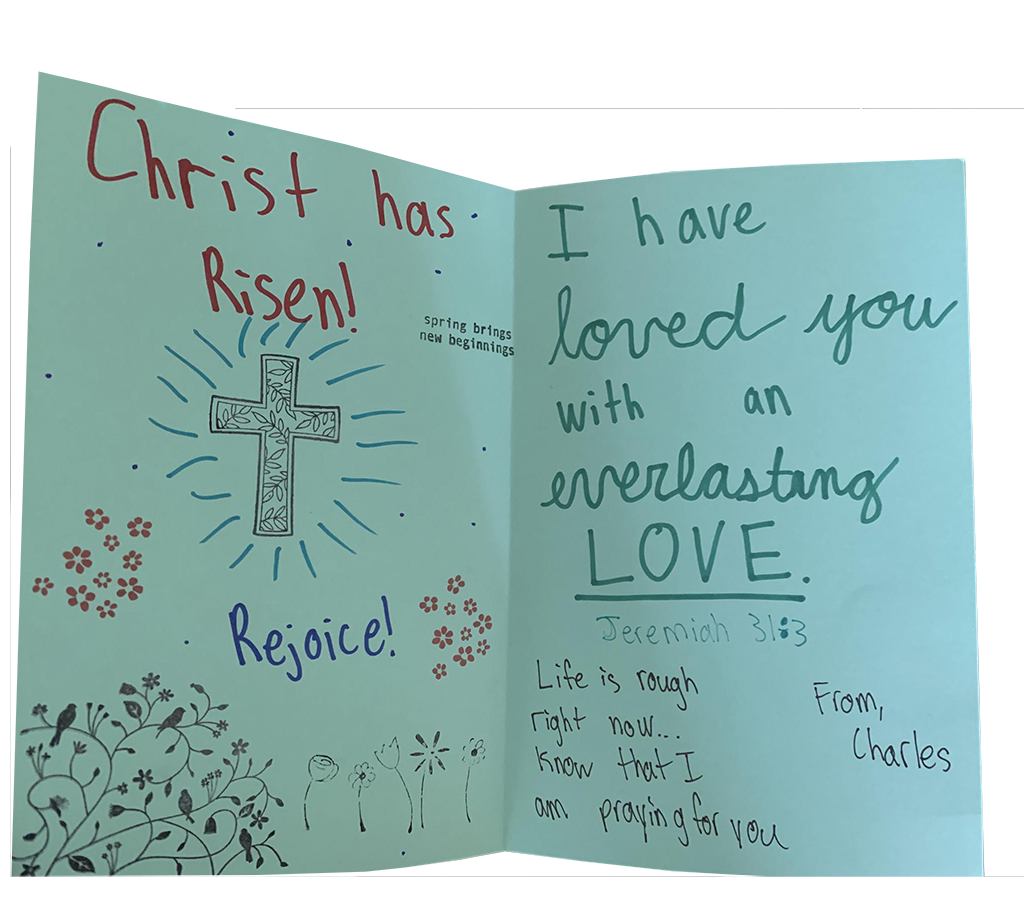 Christ has
Risen!
spring brings
new beginnings
Rejoice!
I have
loved you
with an
everlasting
LOVE.
Jeremiah 31:3
Life is rough
right now...
Know that I
am praying for you
From,
Charles